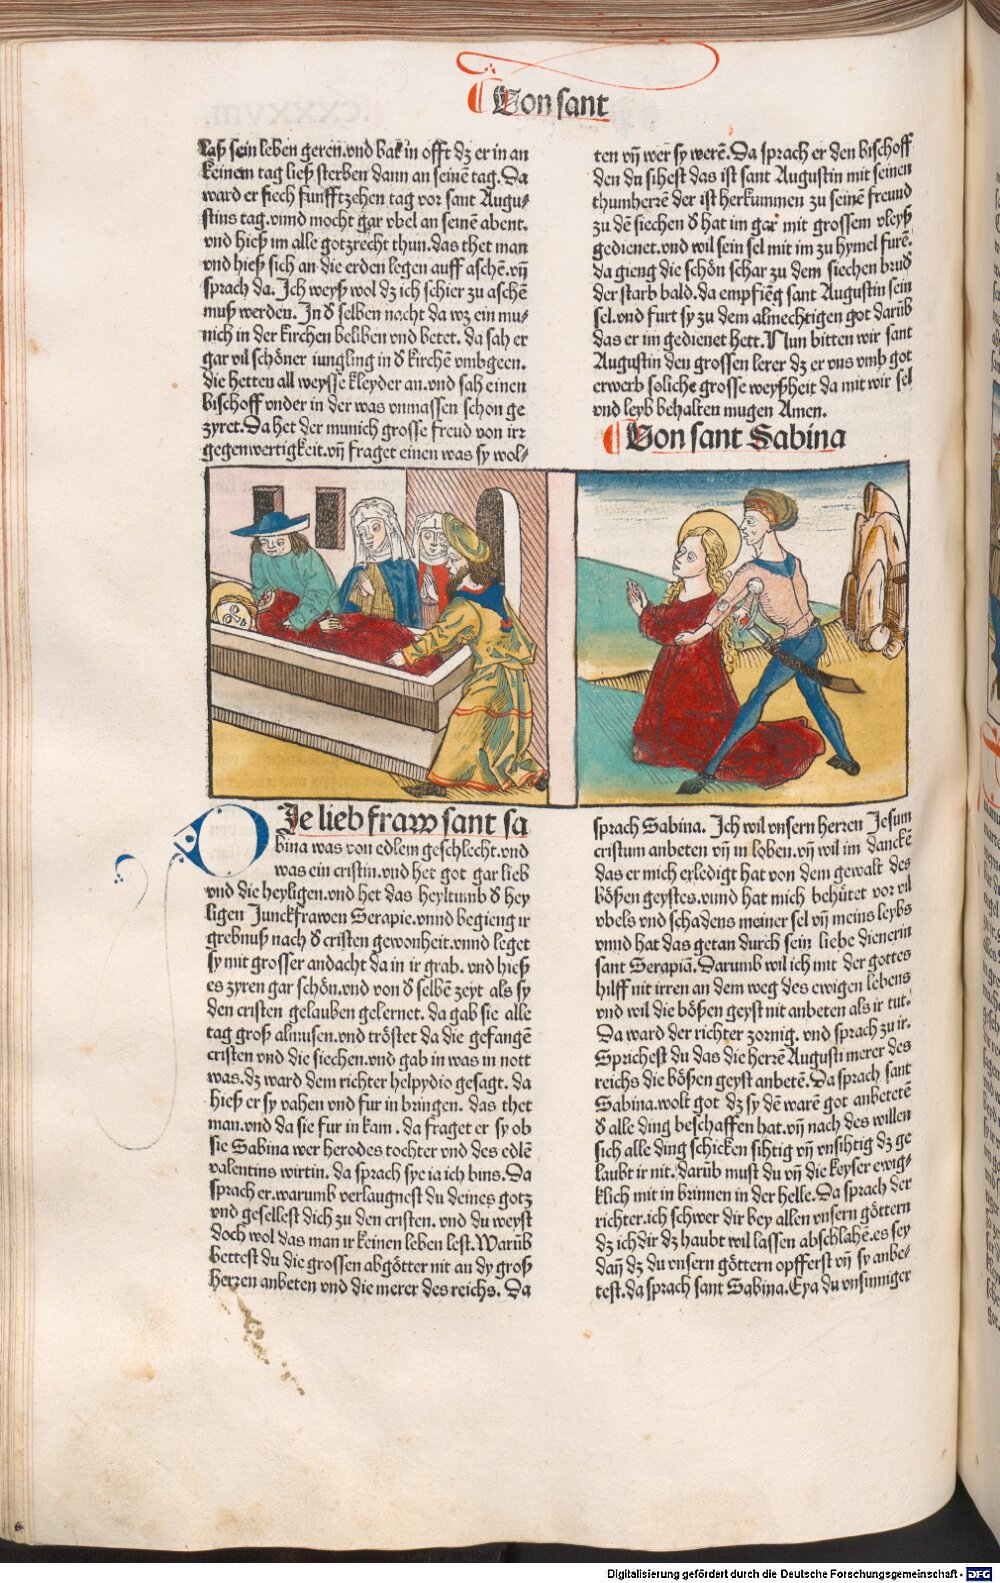 Von sant
laß sein leben geren.vnd bat in offt dz er in an
keinem tag ließ sterben dann an seinē tag. Da
ward er siech funfftzehen tag vor sant Augu⸗
stins tag.vnnd mocht gar vbel an seinē abent.
vnd hieß im alle gotzrecht thun.das thet man
vnd hieß sich an die erden legen auff aschē.vn̄
sprach da. Ich weyß wol dz ich schier zu aschē
muß werden. In d̄ selben nacht da wz ein mu⸗
nich in der kirchen beliben vnd betet. da sah er
gar vil schöner iungling in d̄ kirchē vmbgeen.
die hetten all weysse kleyder an.vnd sah einen
bischoff vnder in der was vnmassen schon ge
zyret.Da het der munich grosse freud von irr
gegenwertigkeit.vn̄ fraget einen was sy wol⸗
ten vn̄ wer sy werē. Da sprach er den bischoff
den du sihest das ist sant Augustin mit seinen
thumherrē der ist herkummen zu seinē freund
zu dē siechen d̄ hat im gar mit grossem vleyß
gedienet.vnd wil sein sel mit im zu hymel furē.
da gieng die schön schar zu dem siechen brud̄
der starb bald.da empfiēg sant Augustin sein
sel.vnd furt sy zu dem almechtigen got darūb
das er im gedienet hett. Nun bitten wir sant
Augustin den grossen lerer dz er vns vmb got
erwerb soliche grosse weyßheit da mit wir sel
vnd leyb behalten mugen Amen.
Von sant Sabina
DJe lieb fraw sant sa
bina was von edlem geschlecht.vnd
was ein cristin.vnd het got gar lieb
vnd die heyligen.vnd het das heyltumb d̄ hey
ligen Junckfrawen Serapie.vnnd begieng ir
grebnuß nach d̄ cristen gewonheit.vnnd leget
sy mit grosser andacht da in ir grab. vnd hieß
es zyren gar schön.vnd von d̄ selbē zeyt als sy
den cristen gelauben gelernet. da gab sie alle
tag groß almusen.vnd tröstet da die gefangē
cristen vnd die siechen.vnd gab in was in nott
was.dz ward dem richter helpydio gesagt. da
hieß er sy vahen vnd fur in bringen. das thet
man.vnd da sie fur in kam . da fraget er sy ob
sie Sabina wer herodes tochter vnd des edlē
valentins wirtin. da sprach sye ia ich bins. Da
sprach er.warumb verlaugnest du deines gotz
vnd gesellest dich zu den cristen. vnd du weyst
doch wol das man ir keinen leben lest.Warūb
bettest du die grossen abgötter nit an dy groß
herzen anbeten vnd die merer des reichs. Da
sprach Sabina. Ich wil vnsern herren Jesum
cristum anbeten vn̄ in loben.vn̄ wil im danckē
das er mich erledigt hat von dem gewalt des
bößen geystes.vnnd hat mich behütet vor vil
vbels vnd schadens meiner sel vn̄ meins leybs
vnnd hat das getan durch sein liebe dienerin
sant Serapiā. Darumb wil ich mit der gottes
hilff nit irren an dem weg des ewigen lebens
vnd wil die bößen geyst nit anbeten als ir tut.
Da ward der richter zornig. vnd sprach zu ir.
Sprichest du das die herrē Augusti merer des
reichs die bößen geyst anbetē. Da sprach sant
Sabina.wolt got dz sy dē warē got anbetetē
d̄ alle ding beschaffen hat.vn̄ nach des willen
sich alle ding schicken sihtig vn̄ vnsihtig dz ge
laubt ir nit. darūb must du vn̄ die keyser ewig⸗
klich mit in brinnen in der helle. Da sprach der
richter.ich schwer dir bey allen vnsern göttern
dz ich dir dz haubt wil lassen abschlahē.es sey
dan̄ dz du vnsern göttern opfferst vn̄ sy anbe⸗
test.da sprach sant Sabina.Eya du vnsinniger
Digitalisierung gefördert durch die Deutsche Forschungsgemeinschaft - DFG